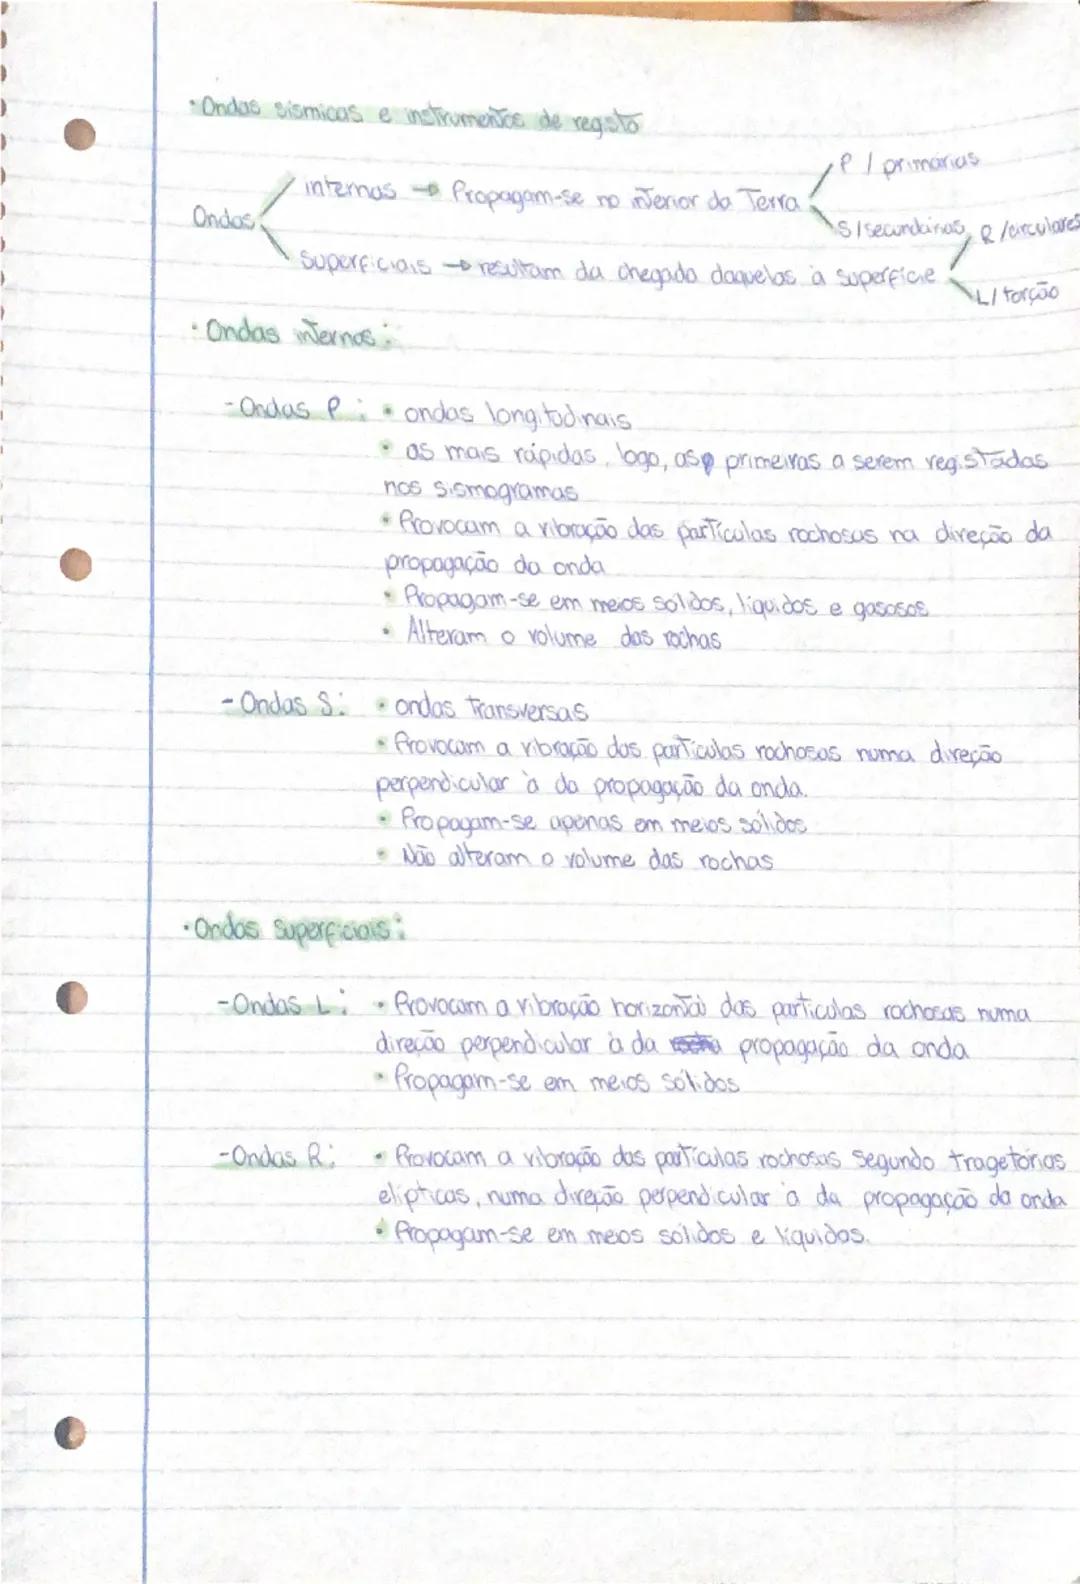 • Ondas sísmicas e instrumentos de registo
P / primárias
internas → Propagam-se no interior da Terra
Ondas
S / secundárias
R / circulares
superficiais → resultam da chegada daquelas à superfície
L / torção
• Ondas internas:
- Ondas P: • ondas longitudinais
• as mais rápidas, logo, as primeiras a serem registadas
nos sismogramas
• Provocam a vibração das partículas rochosas na direção da
propagação da onda
• Propagam-se em meios sólidos, líquidos e gasosos
• Alteram o volume das rochas
- Ondas S: • ondas transversais
• Provocam a vibração das partículas rochosas numa direção
perpendicular à da propagação da onda.
• Propagam-se apenas em meios sólidos
• Não alteram o volume das rochas
• Ondas superficiais:
- Ondas L: • Provocam a vibração horizontal das partículas rochosas numa
direção perpendicular à da propagação da onda
• Propagam-se em meios sólidos
- Ondas R: • Provocam a vibração das partículas rochosas segundo tragetórias
elípticas, numa direção perpendicular à da propagação da onda
• Propagam-se em meios sólidos e líquidos.